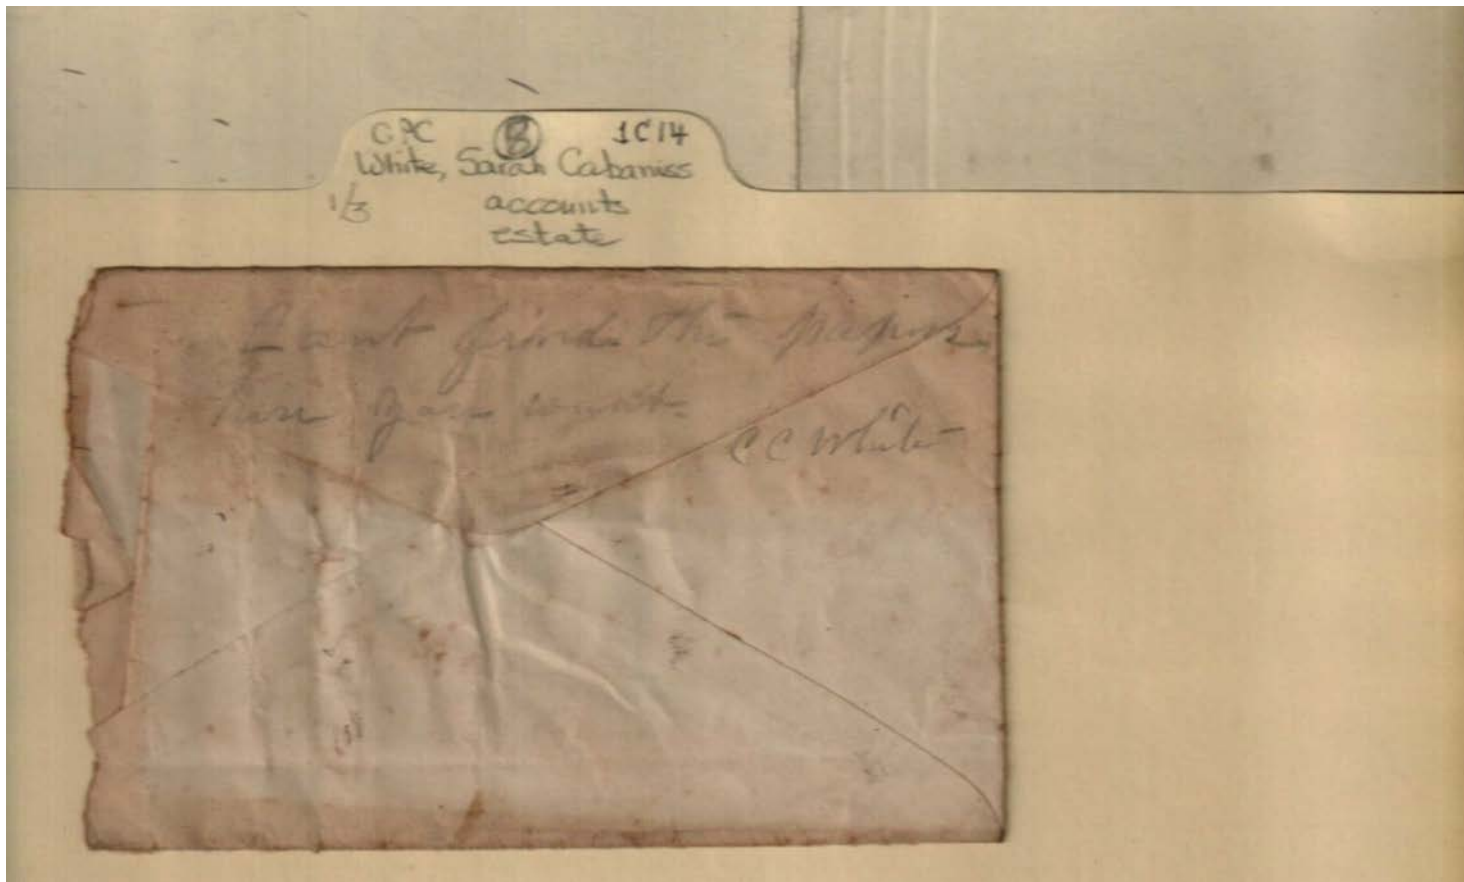 CPC B 1C14
White, Sarah Cabaniss
1/3 accounts
estate
I cant find the papers
here you want.
C C White